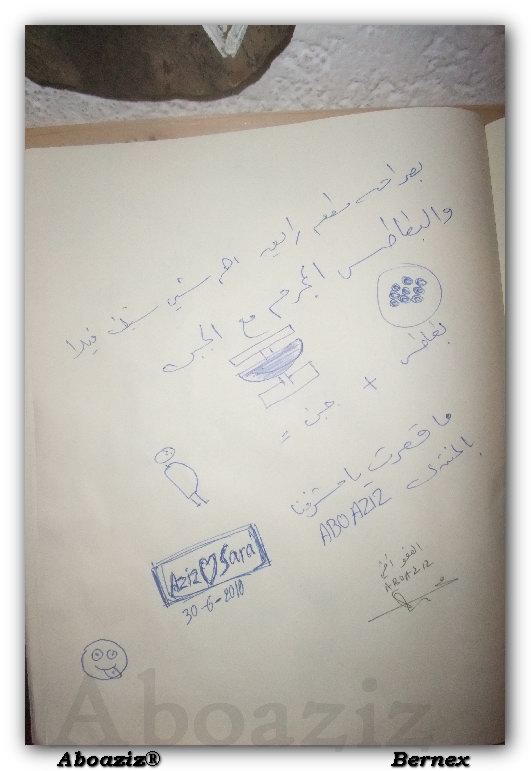 بصراحه مطعم رايق اهم شي ستيك فيدا
والبطاطس المجرم مع الجبن
بطاطس + جبن =
ما قصرت يا مشرفنا
بالمنتدى ABOAZIZ
Aziz Sara
30-6-2010
ABOAZIZ
Aboaziz
Aboaziz® Bernex